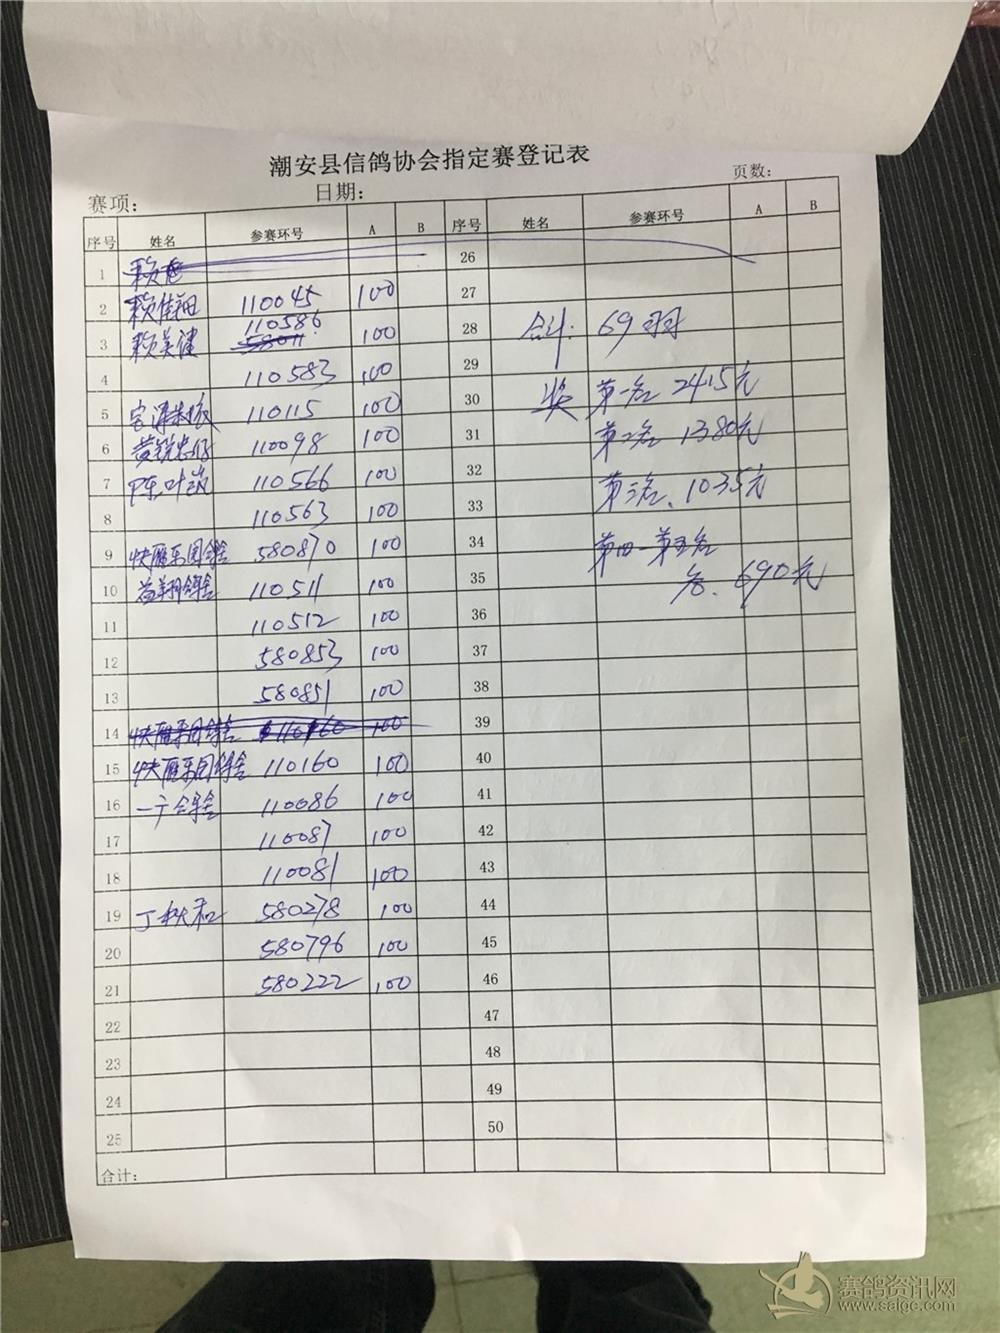 潮安县信鸽协会指定赛登记表
赛项： 日期： 页数：
序号 姓名 参赛环号 A B 序号 姓名 参赛环号 A B
1 26
2 赖佳翔 110045 100 27
3 赖美健 110586 100 28 合计: 69羽
4 110583 100 29
5 110115 100 30 奖 第一名 2415元
6 110098 100 31 第二名 1380元
7 陈叶 110566 100 32
8 110563 100 33 第三名、1035元
9 快雁乐园鸽舍 580870 100 34 第四一第五名
10 益翔鸽舍 110511 100 35 名、690元
11 110512 100 36
12 580853 100 37
13 580851 100 38
14 快雁乐园鸽舍 110160 100 39
15 快雁乐园鸽舍 110160 100 40
16 一广鸽舍 110086 100 41
17 110087 100 42
18 110081 100 43
19 丁秋和 580278 100 44
20 580796 100 45
21 580222 100 46
22 47
23 48
24 49
25 50
合计：
赛鸽资讯网
www.saige.com